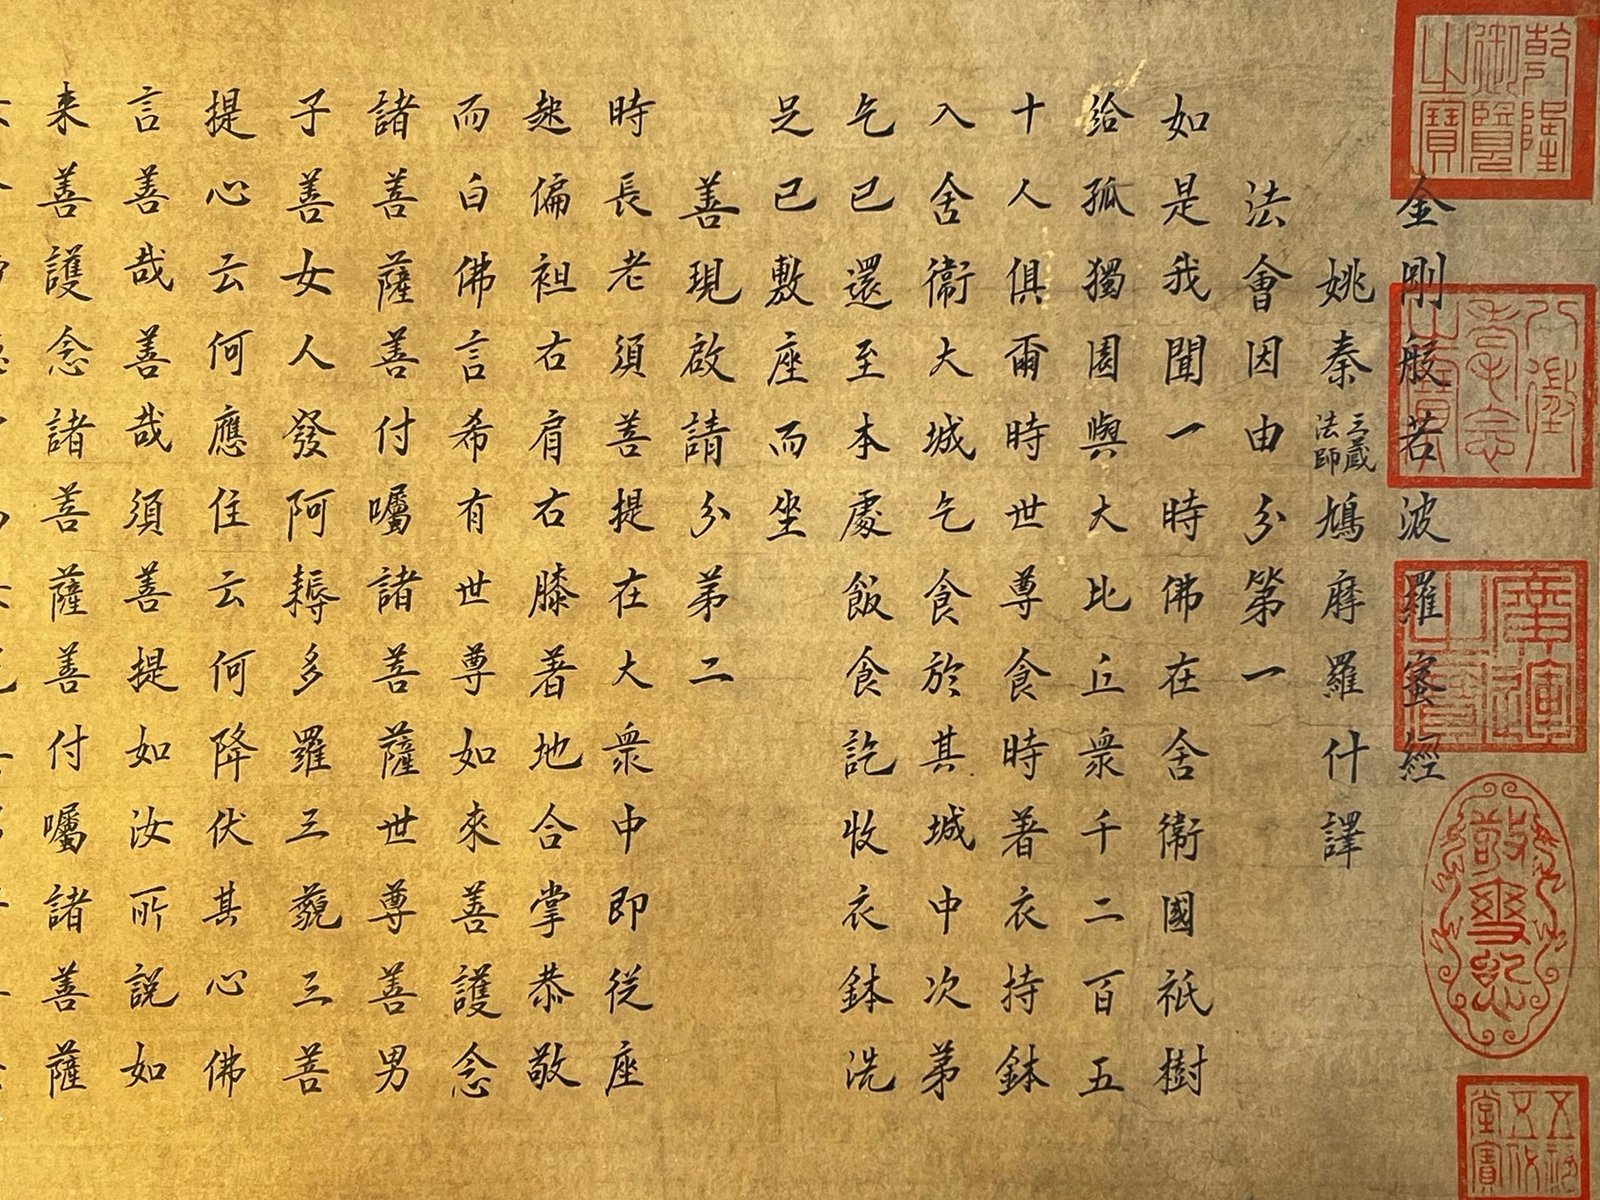 乾隆御覽之寶
八徵耄念之寶
廣運之寶
金剛般若波羅蜜經
姚秦三藏法師鳩摩羅什譯
法會因由分第一
如是我聞一時佛在舍衛國祇樹
給孤獨園與大比丘衆千二百五
十人俱爾時世尊食時著衣持鉢
入舍衛大城乞食於其城中次第
乞已還至本處飯食訖收衣鉢洗
足已敷座而坐
善現啟請分第二
時長老須菩提在大衆中即從座
起偏袒右肩右膝著地合掌恭敬
而白佛言希有世尊如來善護念
諸菩薩善付囑諸菩薩世尊善男
子善女人發阿耨多羅三藐三菩
提心云何應住云何降伏其心佛
言善哉善哉須菩提如汝所說如
来善護念諸菩薩善付囑諸菩薩